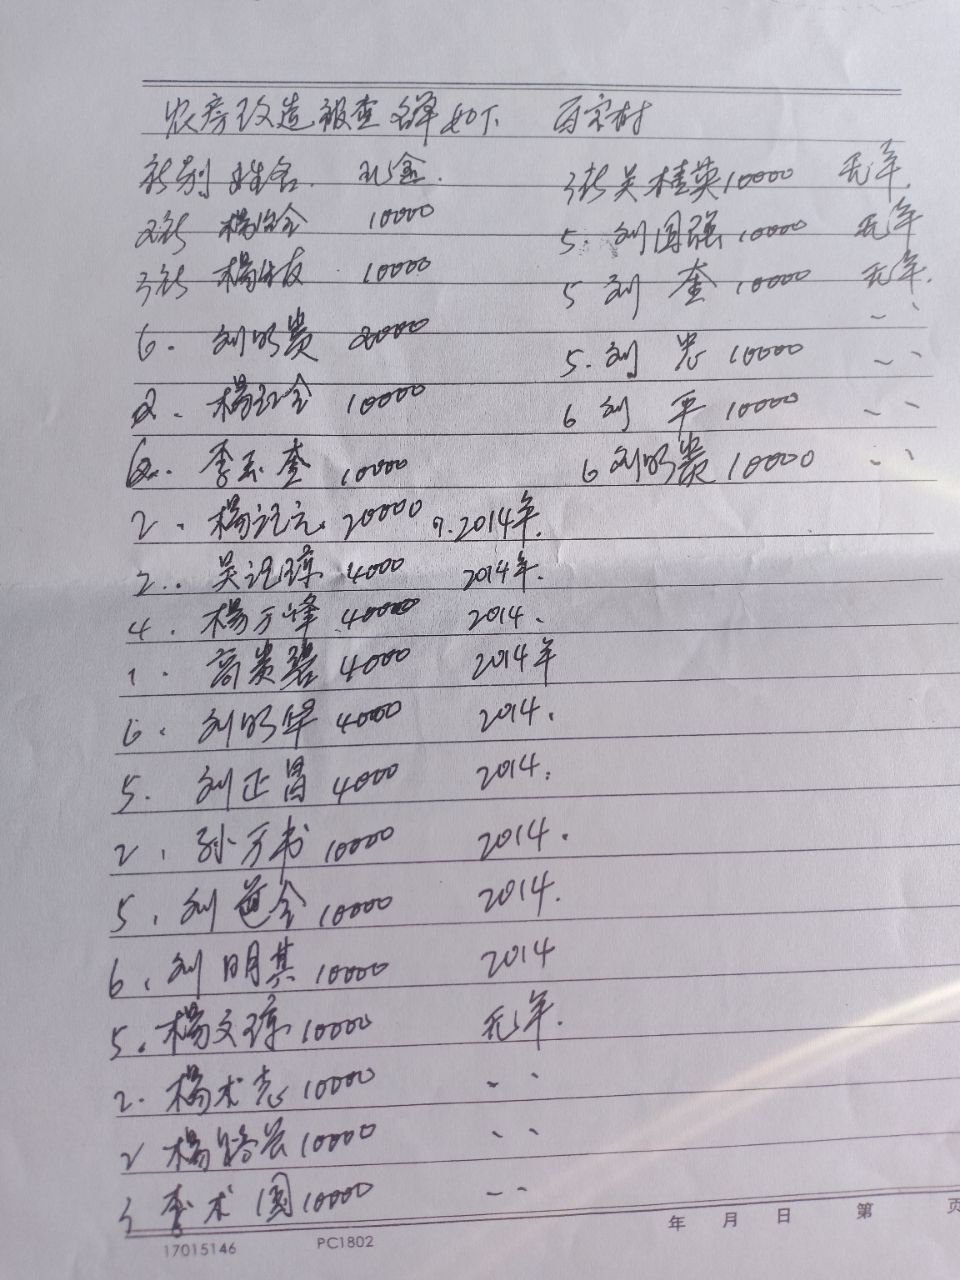 农房改造被查名单如下 百宗村
社别 姓名. 现金.
2社 杨金 10000
3社 杨友 10000
6. 刘明贵 2000
2. 杨红全 10000
李玉奎 10000
2. 杨记 20000 2014年.
2. 吴记琼 4000 2014年.
4. 杨万峰 40000 2014.
1. 高贵碧 4000 2014年
6. 刘明华 4000 2014.
5. 刘正昌 4000 2014.
2. 孙万书 10000 2014.
5. 刘道全 10000 2014.
6. 刘明其 10000 2014
5. 杨文琼 10000 无年.
2. 杨术志 10000 、、
2 杨 10000 、、
3 李术国 10000 、、
3社 吴桂英 10000 无年.
5. 刘国强 10000 无年
5 刘奎 10000 无年.
、、
5. 刘忠 10000 、、
6 刘平 10000 、、
6 刘明贵 10000 、、
年 月 日 第 页
17015146 PC1802